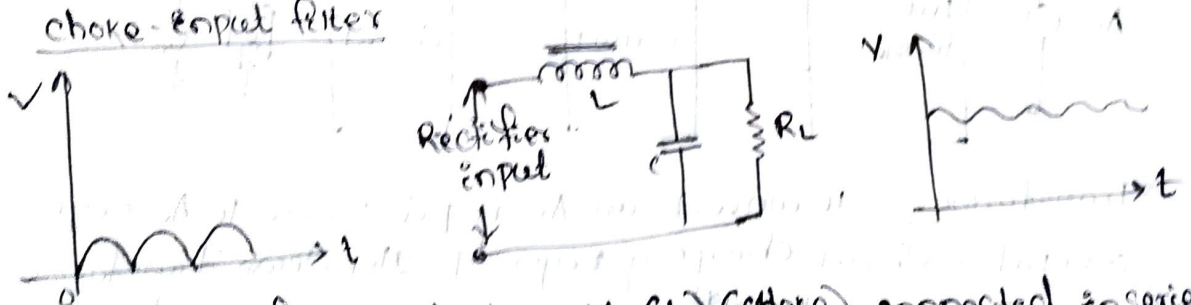 choke-input filter
V
t
0
Rectifier
input
L
C
RL
V
t
connected in series